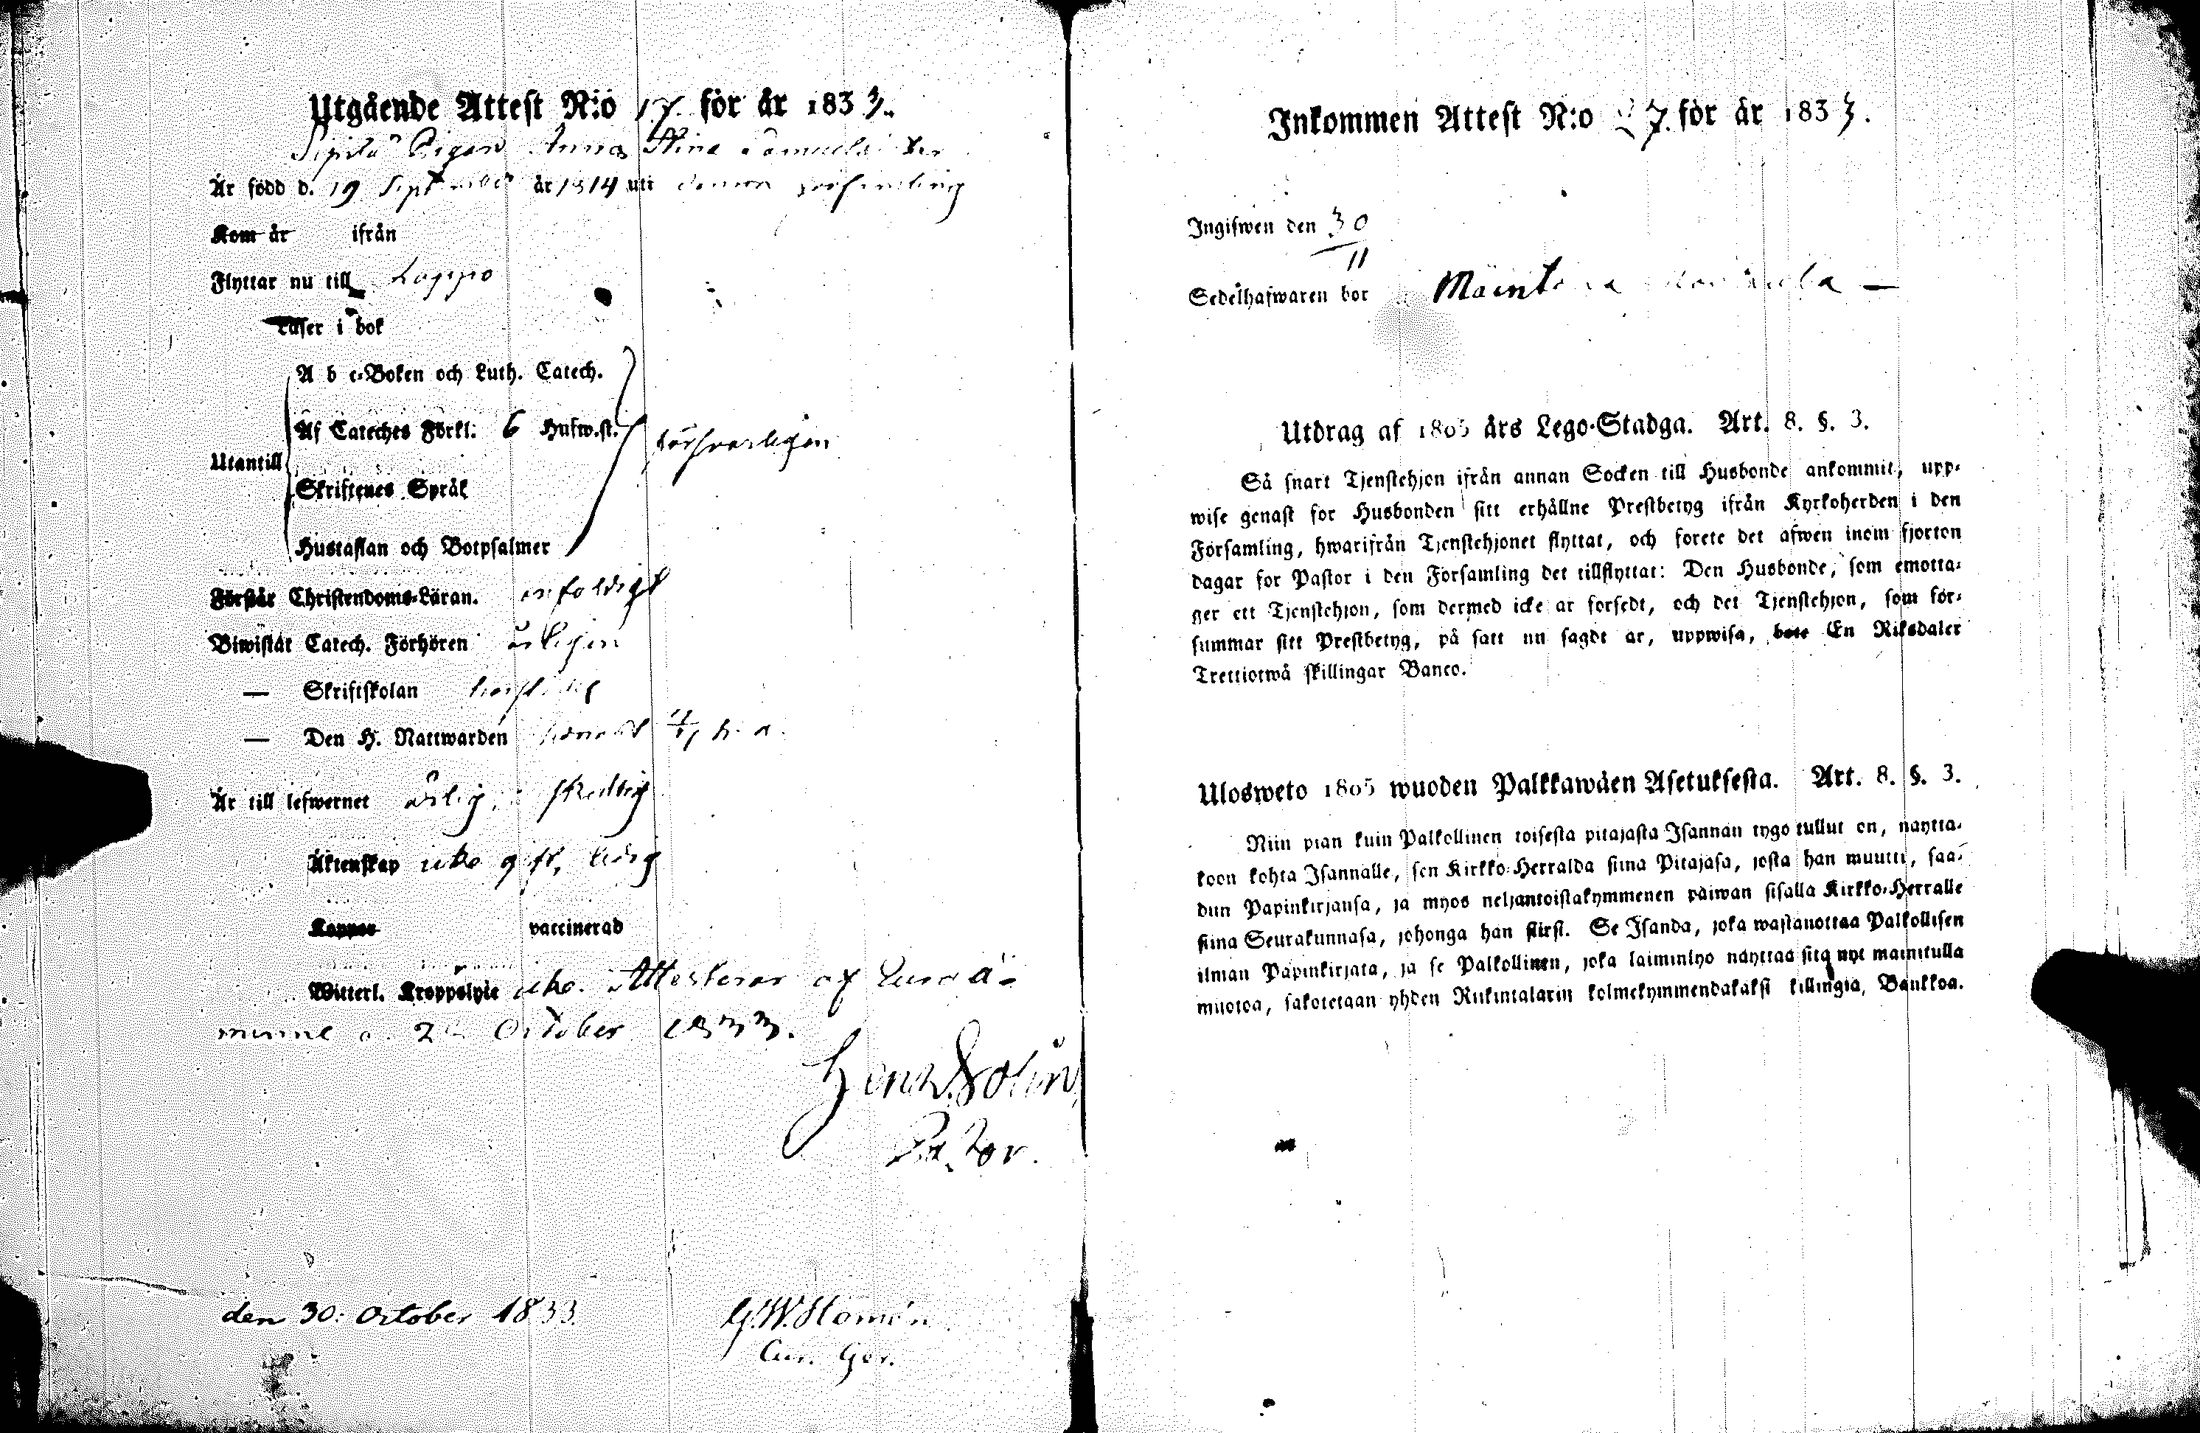 Utgående Attest N:o 17. för år 1833.
Pigan Anna Stina Samuels
Är född d. 19 September år 1814 uti denna församling
Kom år ifrån
Flyttar nu till Lappo
Läser i bok
A b c-Boken och Luth. Catech.
Af Catechis Förkl. 6 Hufw.st. försvarligen
Utantill
Skriftenes Språk
Hustaflan och Botpsalmer
Förstår Christendoms-Läran. enfaldigt
Biwiståt Catech. Förhören årligen
— Skriftskolan
— Den H. Nattwarden h. a.
Är till lefwernet ärlig, skedlig
Äktenskap icke gift, ledig
Koppor vaccinerad
Witterl. Kroppslyte icke. Attesterar af
minne d. October 1833.
Pastor.
den 30: October 1833. G.W. Homén
Cur. Ger.
Inkommen Attest N:o 27. för år 1833.
Ingifwen den 30/11
Sedelhafwaren bor —
Utdrag af 1805 års Lego-Stadga. Art. 8. §. 3.
Så snart Tjenstehjon ifrån annan Socken till Husbonde ankommit, upp-
wise genast for Husbonden sitt erhållne Prestbetyg ifrån Kyrkoherden i den
Forsamling, hwarifrån Tjenstehjonet flyttat, och forete det afwen inom fjorton
dagar for Pastor i den Forsamling det tillflyttat: Den Husbonde, som emotta-
ger ett Tjenstehjon, som dermed icke ar forsedt, och det Tjenstehjon, som for-
summar sitt Prestbetyg, på satt nu sagdt ar, uppwisa, bote En Riksdaler
Trettiotwå skillingar Banco.
Ulosweto 1805 wuoden Palkkawäen Asetuksesta. Art. 8. §. 3.
Niin pian kuin Palkollinen toisesta pitajasta Isannan tygo tullut on, naytta-
koon kohta Isannalle, sen Kirkko-Herralda siina Pitajasa, josta han muutti, saa-
dun Papinkirjansa, ja myos neljantoistakymmenen päiwan sisalla Kirkko-Herralle
siina Seurakunnasa, johonga han siirsi. Se Isanda, joka wastanottaa Palkollisen
ilman Papinkirjata, ja se Palkollinen, joka laiminlyo nayttaa sitä nyt mainitulla
muotoa, sakotetaan yhden Riikintalarin kolmekymmendakaksi killingia, Bankkoa.